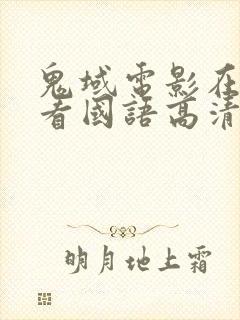 鬼域電影在
看國語高清
明月地上霜